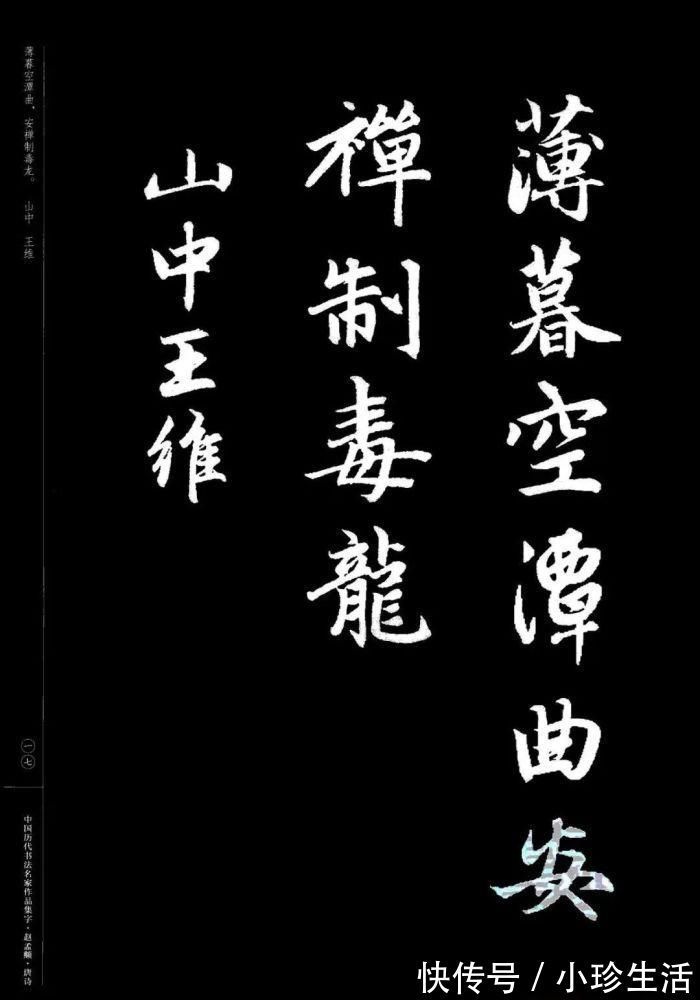 薄暮空潭曲安
禪制毒龍
山中王維
薄暮空潭曲，安禅制毒龙。 山中 王维
一七
中国历代书法名家作品集字·赵孟頫·唐诗
快传号／小珍生活